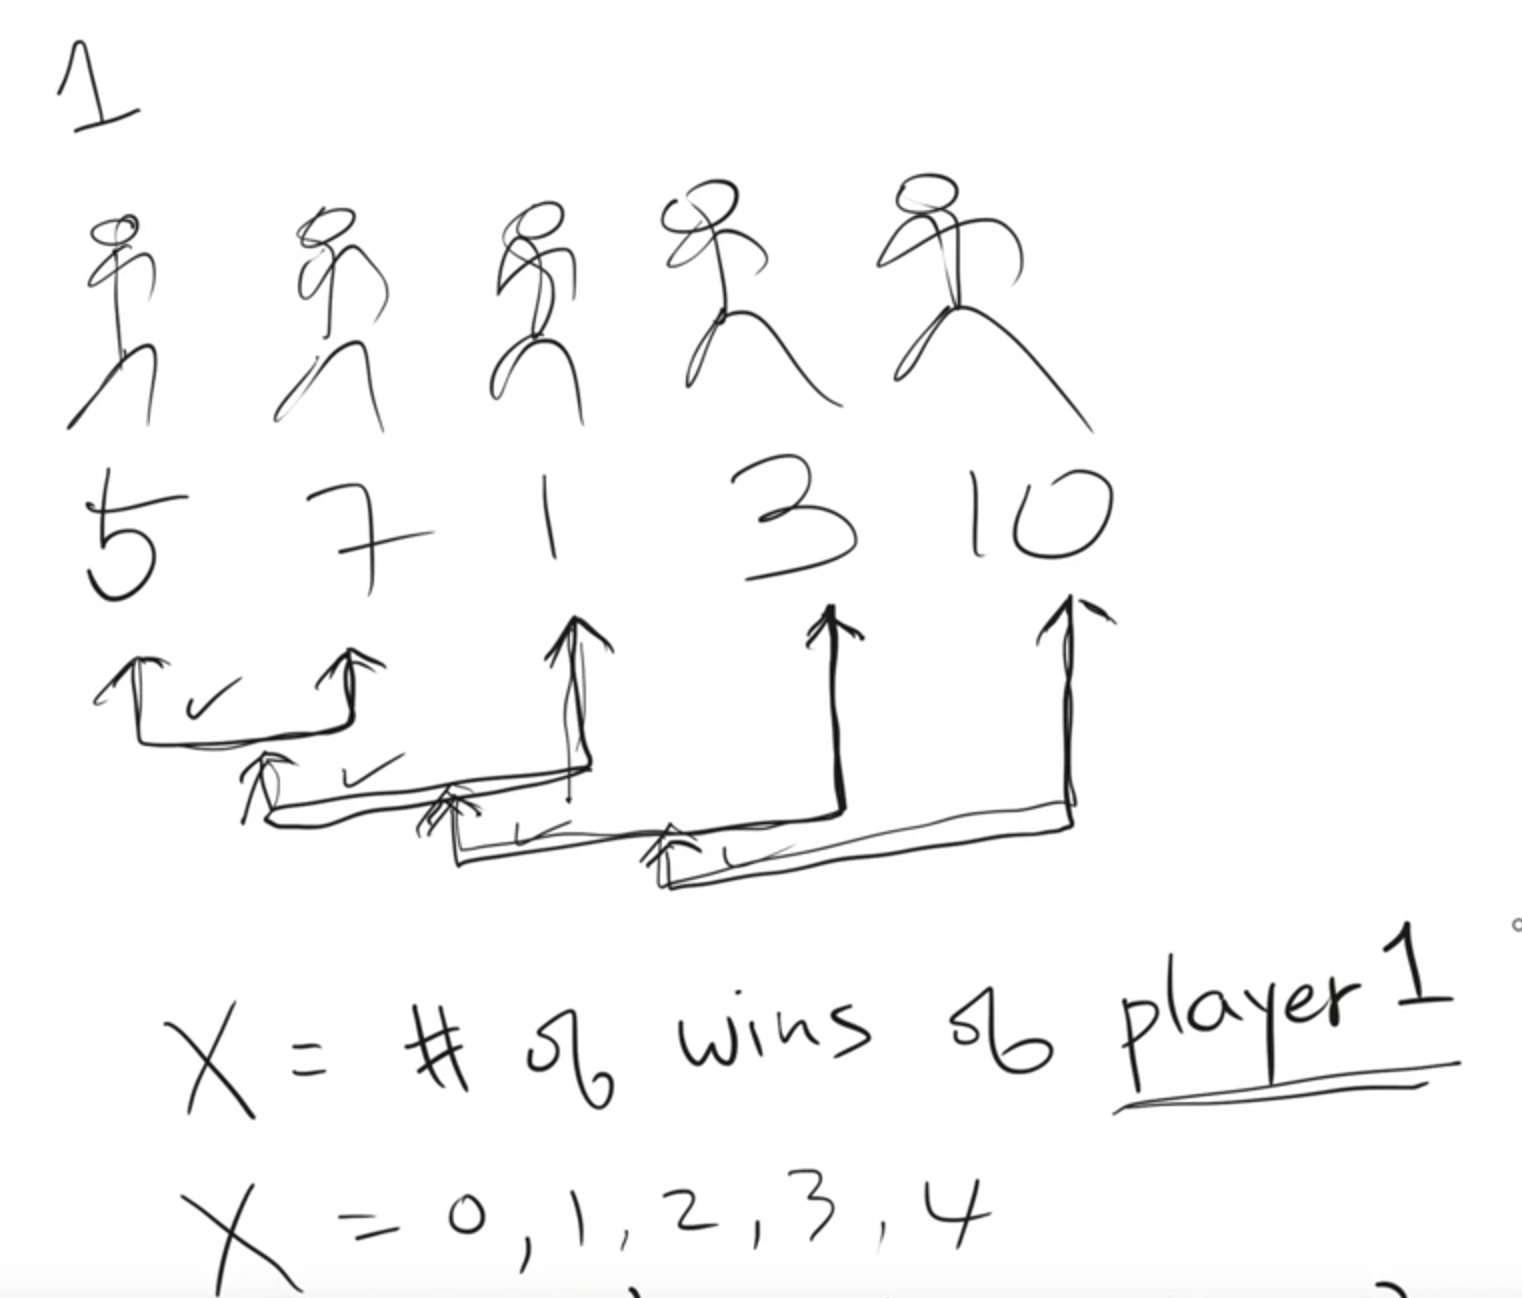 1
5 7 1 3 10
X = # of wins of player 1
X = 0, 1, 2, 3, 4